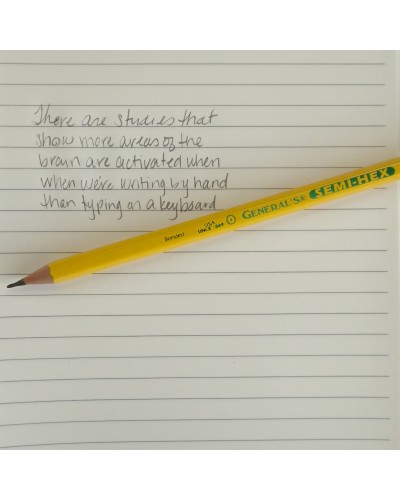 There are studies that
show more areas of the
brain are activated when
when we're writing by hand
than typing on a keyboard
Bonded GENERAL'S® SEMI-HEX